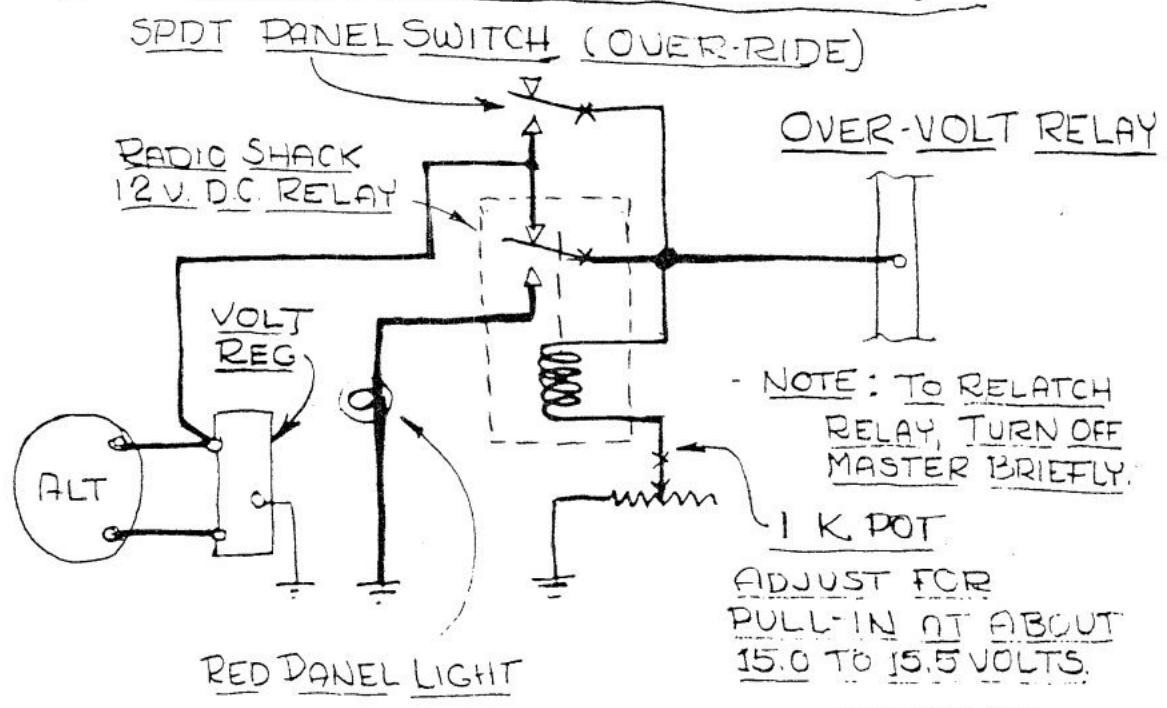 SPDT PANEL SWITCH (OVER-RIDE)
OVER-VOLT RELAY
RADIO SHACK
12 V. D.C. RELAY
VOLT
REG
ALT
- NOTE: TO RELATCH
RELAY, TURN OFF
MASTER BRIEFLY.
1 K POT
ADJUST FOR
PULL-IN AT ABOUT
15.0 TO 15.5 VOLTS.
RED PANEL LIGHT